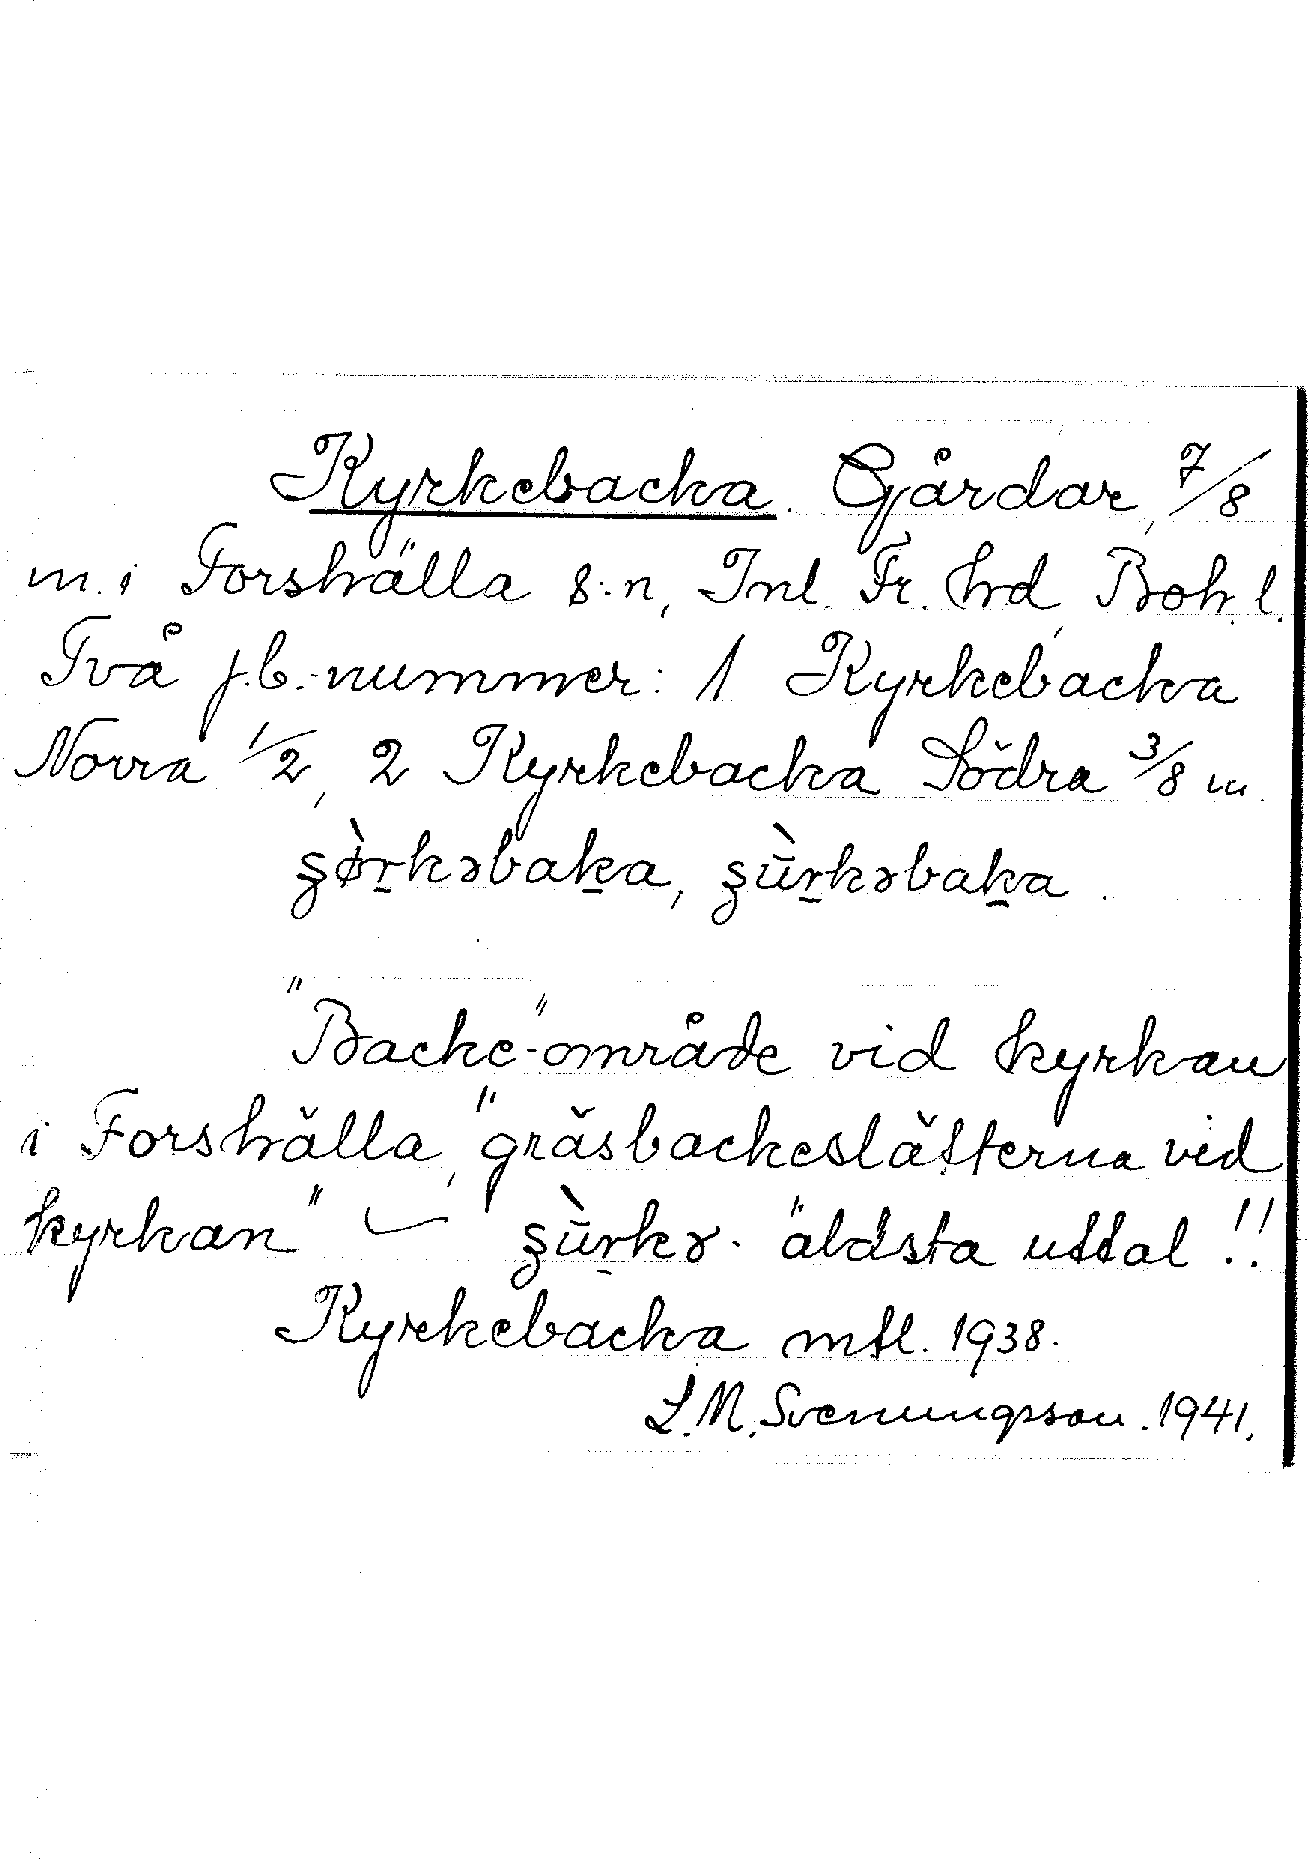 Kyrkebacka. Gårdar, 7/8
m. i Forshälla s:n, Inl. Fr. hd, Boh. l.
Två j.b.-nummer: 1 Kyrkebacka
Norra 1/2, 2 Kyrkebacka Södra 3/8 m.
ʂø̀r̠kəbak̠a, ʂū̀r̠kəbak̠a.
"Backe"-område vid kyrkan
i Forshälla, "gräsbackeslätterna vid
kyrkan" – ʂū̀r̠kə- äldsta uttal!!
Kyrkebacka mtl. 1938.
L. M. Svenungsson. 1941.